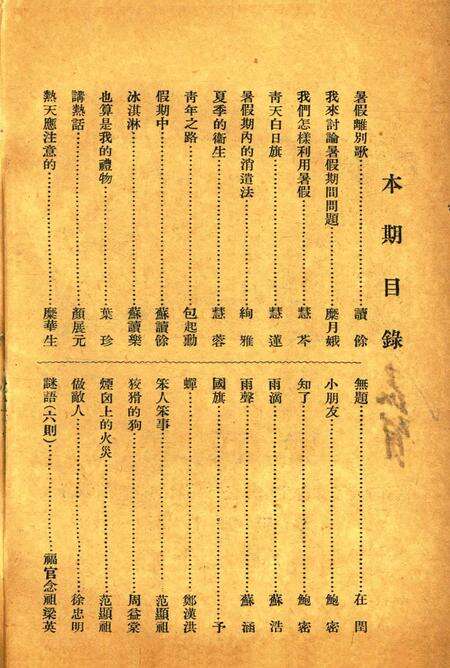 本期目錄
暑假離別歌……讀餘
我來討論暑假期間問題……糜月娥
我們怎樣利用暑假……慧芩
靑天白日旗……慧蓮
暑假期內的消遣法……絢雅
夏季的衞生……慧蓉
靑年之路……包起勳
假期中……蘇讀餘
冰淇淋……蘇讀樂
也算是我的禮物……葉珍
講熱話……顏展元
熱天應注意的……糜華生
無題……在閏
小朋友……鮑密
知了……鮑密
雨滴……蘇浩
雨聲……蘇涵
國旗……予
蟬……鄭漢洪
笨人笨事……范顯祖
狡猾的狗……周益棠
煙囪上的火災……范顯祖
做敵人……徐忠明
謎語(六則)……福官念祖梁英